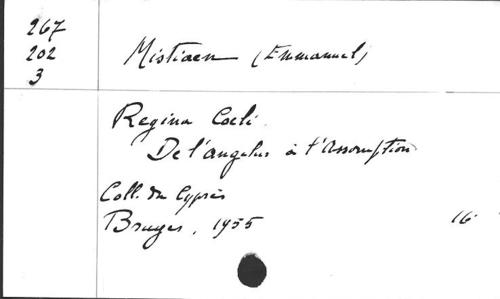 267
202
3
Mistiaen (Emmanuel)
Regina Coeli.
De l'angelus à l'Assomption
Coll. du Cyprès
Bruges, 1955
16°